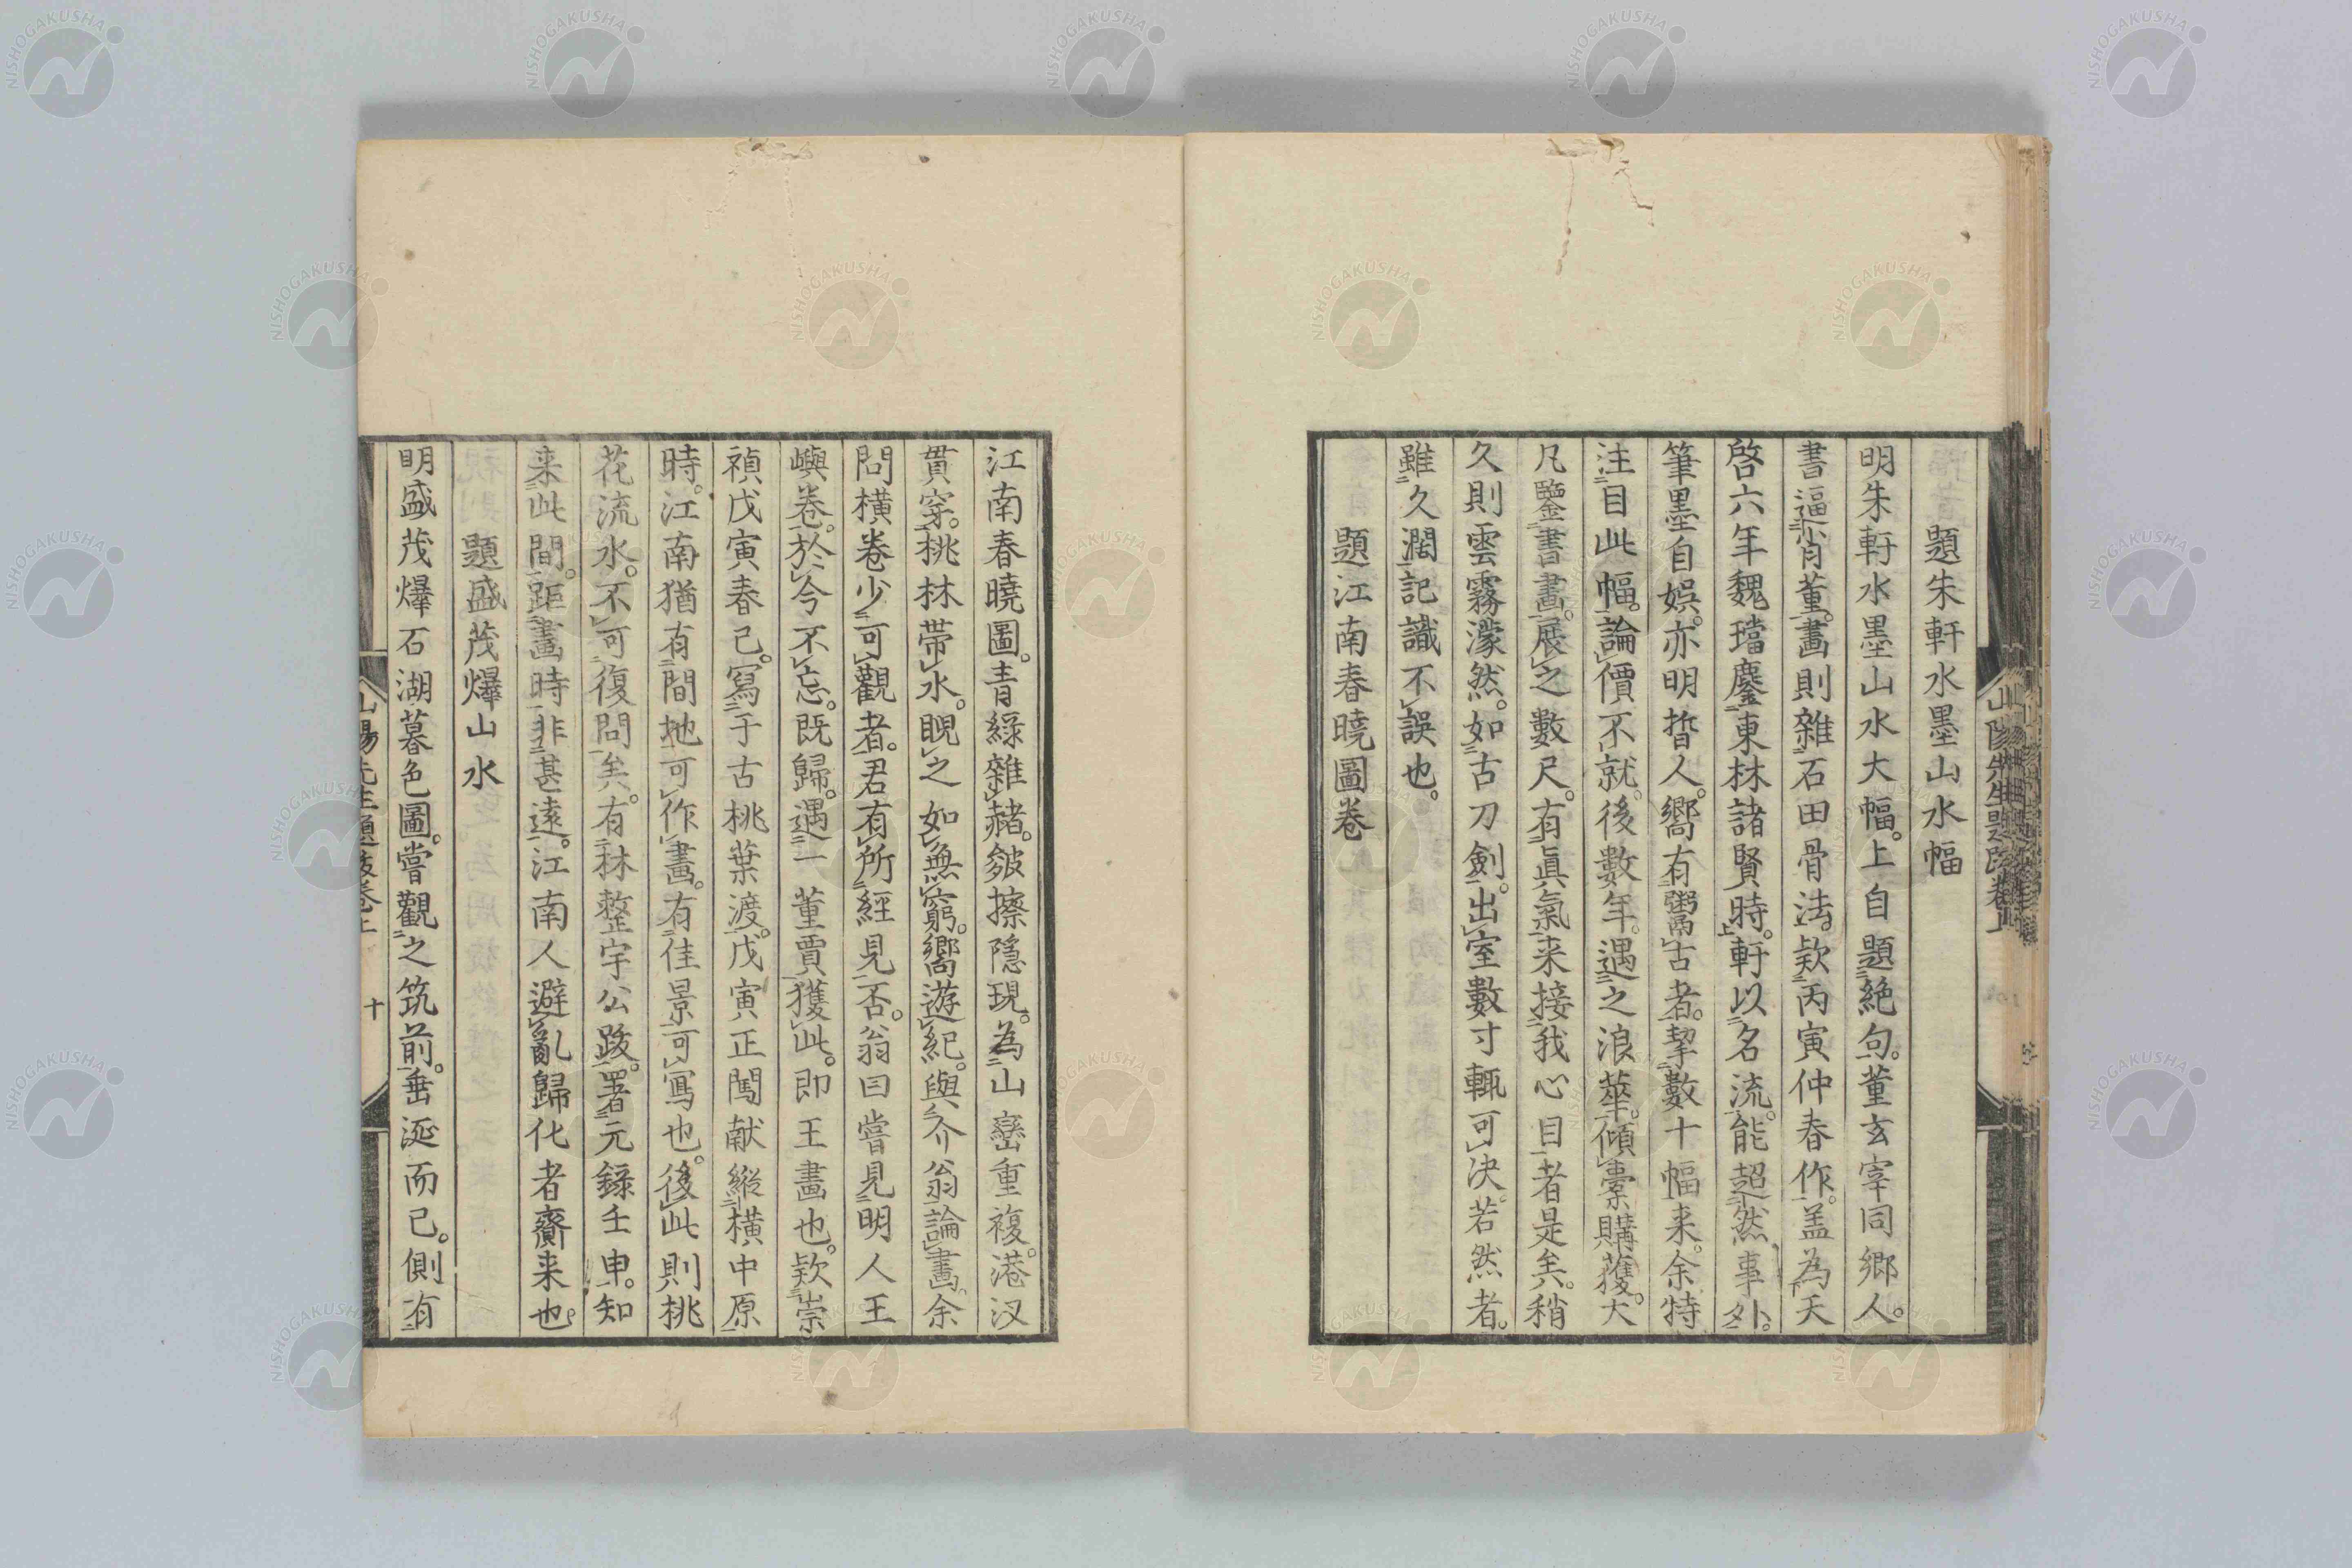 題朱軒水墨山水幅
明朱軒水墨山水大幅。上自題絶句。董玄宰同鄉人。
書逼肖董。畫則雜石田骨法。欵丙寅仲春作。盖為天
啓六年魏璫鏖東林諸賢時。軒以名流。能超然事外。
筆墨自娯。亦明晢人。嚮有鬻古者。挈數十幅来。余特
注目此幅。論價不就。後數年。遇之浪華。傾橐購獲。大
凡鑒書畫。展之數尺。有眞氣来接我心目者是矣。稍
久則雲霧濛然。如古刀劍。出室數寸輙可决。若然者。
雖久濶記識不誤也。
題江南春曉圖卷
江南春曉圖。青綠雜赭。皴擦隱現。為山巒重複。港汊
貫穿。桃林帯水。睨之如無窮。嚮遊紀。與介翁論畫。余
問橫卷少可觀者。君有所經見否。翁曰嘗見明人王
嶼卷。於今不忘。既歸。遇一董賈獲此。即王畫也。欵崇
禎戊寅春己。寫于古桃葉渡。戊寅正闖献縱橫中原
時。江南猶有間地可作畫。有佳景可寫也。後此則桃
花流水。不可復問矣。有林整宇公跋。署元錄壬申。知
来此間。距畫時非甚遠。江南人避亂歸化者齎来也。
題盛茂爗山水
明盛茂爗石湖暮色圖。嘗觀之筑前。垂涎而已。側有
山陽先生題跋卷上
十
NISHOGAKUSHA